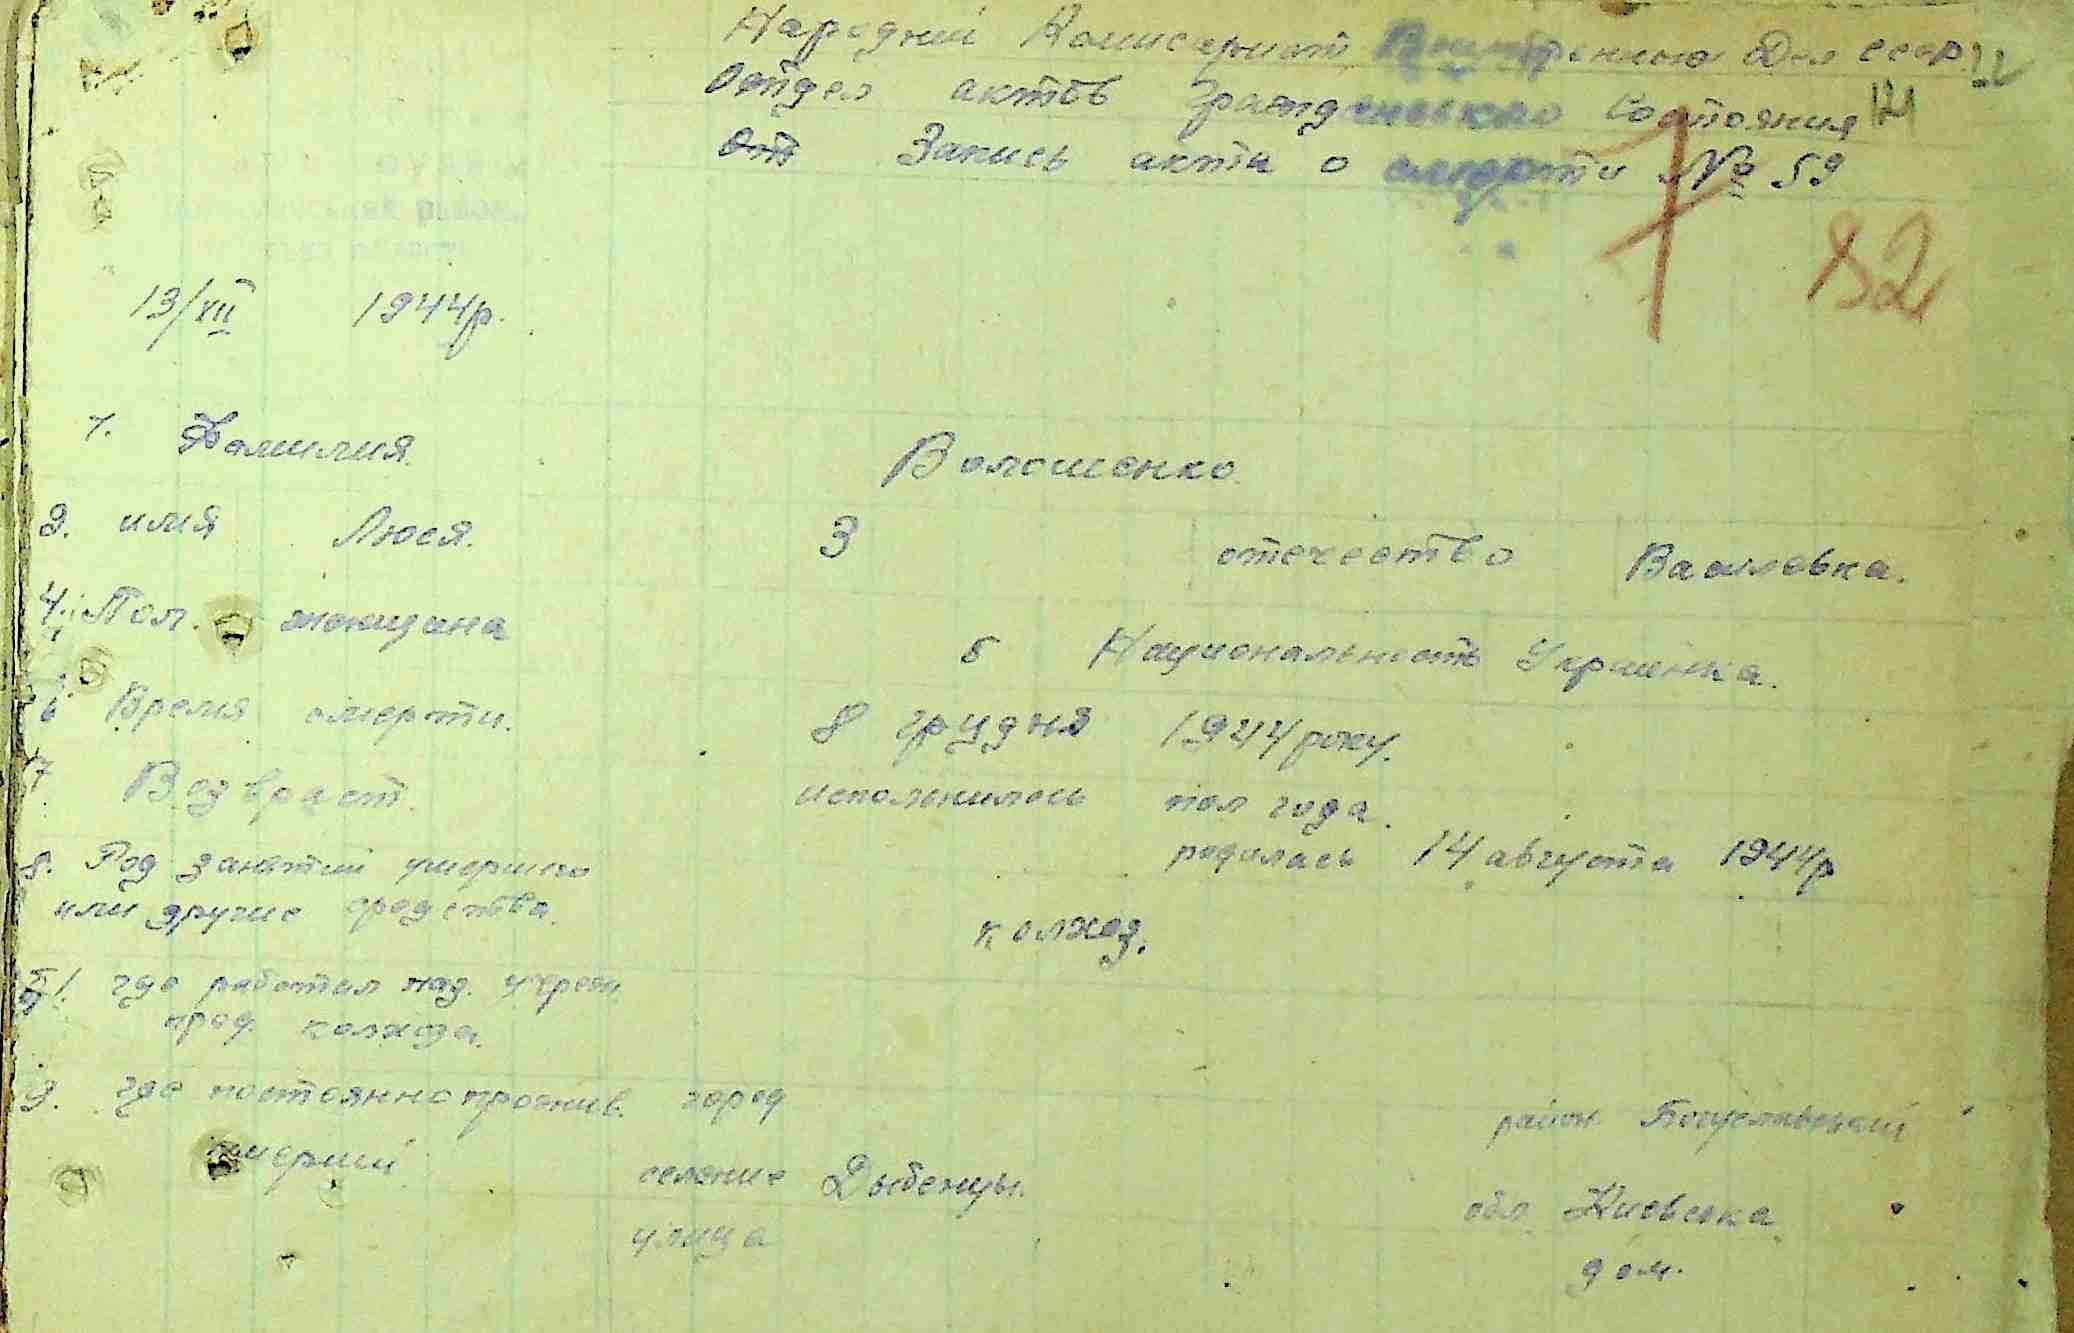 Народний Комисариат Внутренних Дел СССР.
Отдел актов Гражданского Состояния 171
Запись акта о смерти № 59
82
13/XII 1944р.
1. Фамилия. Волошенко
2. имя Люся. 3 отечество Василевка.
4. Пол. женщина 5 Национальность Украинка.
6 Время смерти. 8 грудня 1944 року.
7 Возвраст. исполнилось пол года.
родилась 14 августа 1944р
8. Род занятий умершего
или другие средства. колхоз.
б/. где работал
пред. колхоза.
9. где постоянно прожив. город район Богуславський
умерший селение Дыбенцы. обл. Киевська
улица дом.